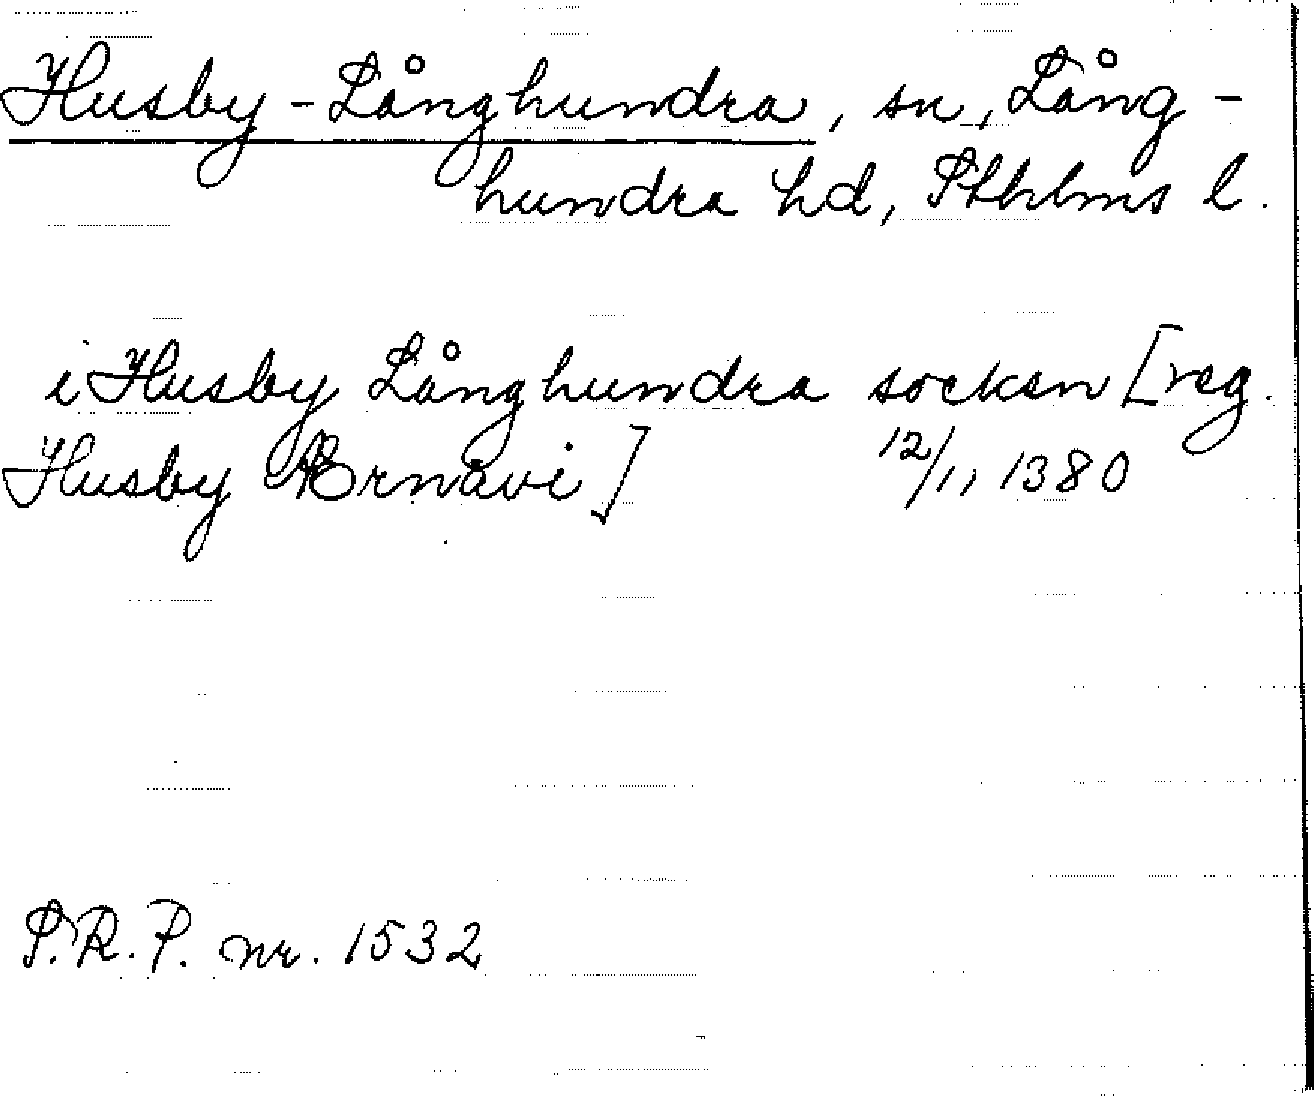 Husby-Långhundra, sn, Lång-
hundra hd, Sthlms l.
i Husby Långhundra socken [reg.
Husby Ærnavi] 12/11 1380
S.R.P. nr. 1532